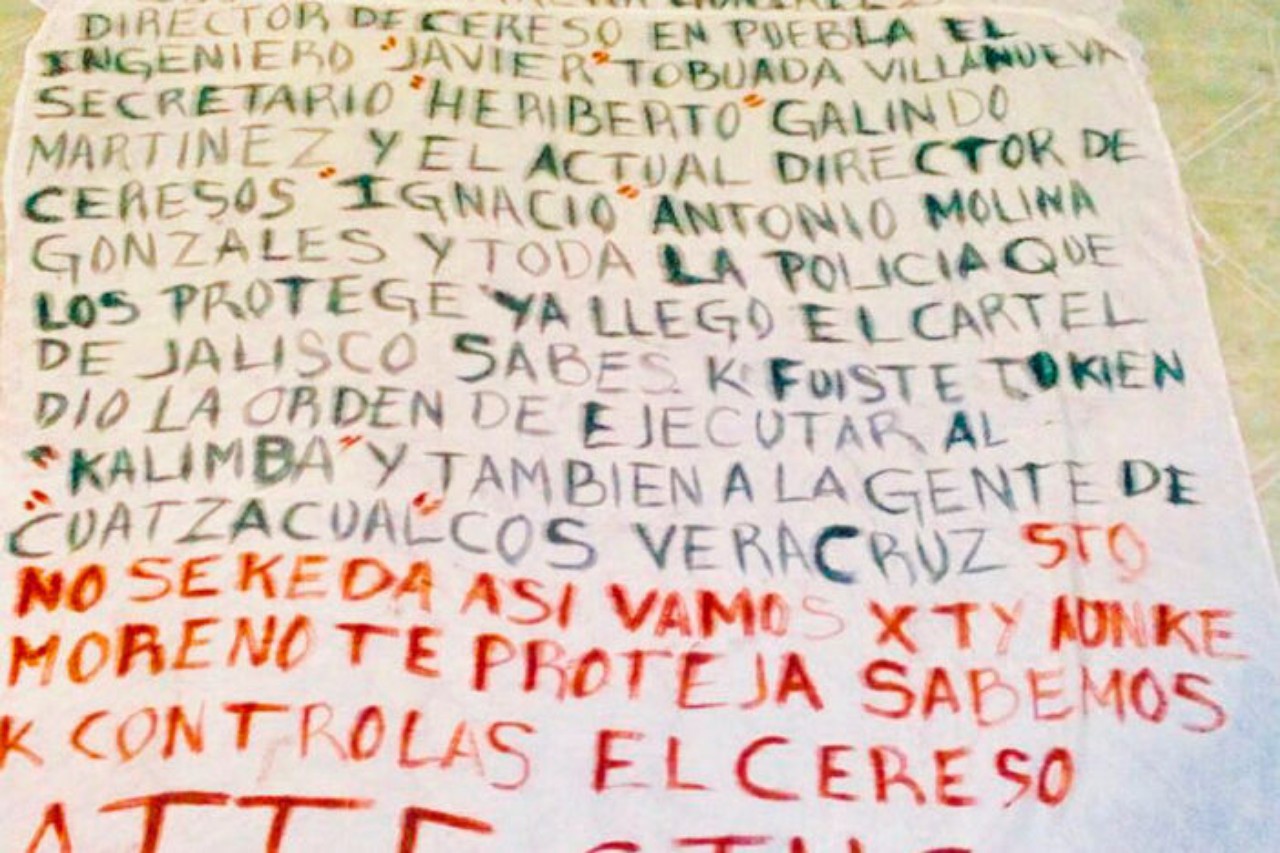 DIRECTOR DE CERESO EN PUEBLA EL
INGENIERO "JAVIER" TOBUADA VILLANUEVA
SECRETARIO "HERIBERTO" GALINDO
MARTINEZ Y EL ACTUAL DIRECTOR DE
CERESOS "IGNACIO" ANTONIO MOLINA
GONZALES Y TODA LA POLICIA QUE
LOS PROTEGE YA LLEGO EL CARTEL
DE JALISCO SABES K FUISTE TU KIEN
DIO LA ORDEN DE EJECUTAR AL
"KALIMBA" Y TAMBIEN A LA GENTE DE
"CUATZACUALCOS" VERACRUZ STO
NO SE KEDA ASI VAMOS X TI Y AUNKE
MORENO TE PROTEJA SABEMOS
K CONTROLAS EL CERESO
ATTE